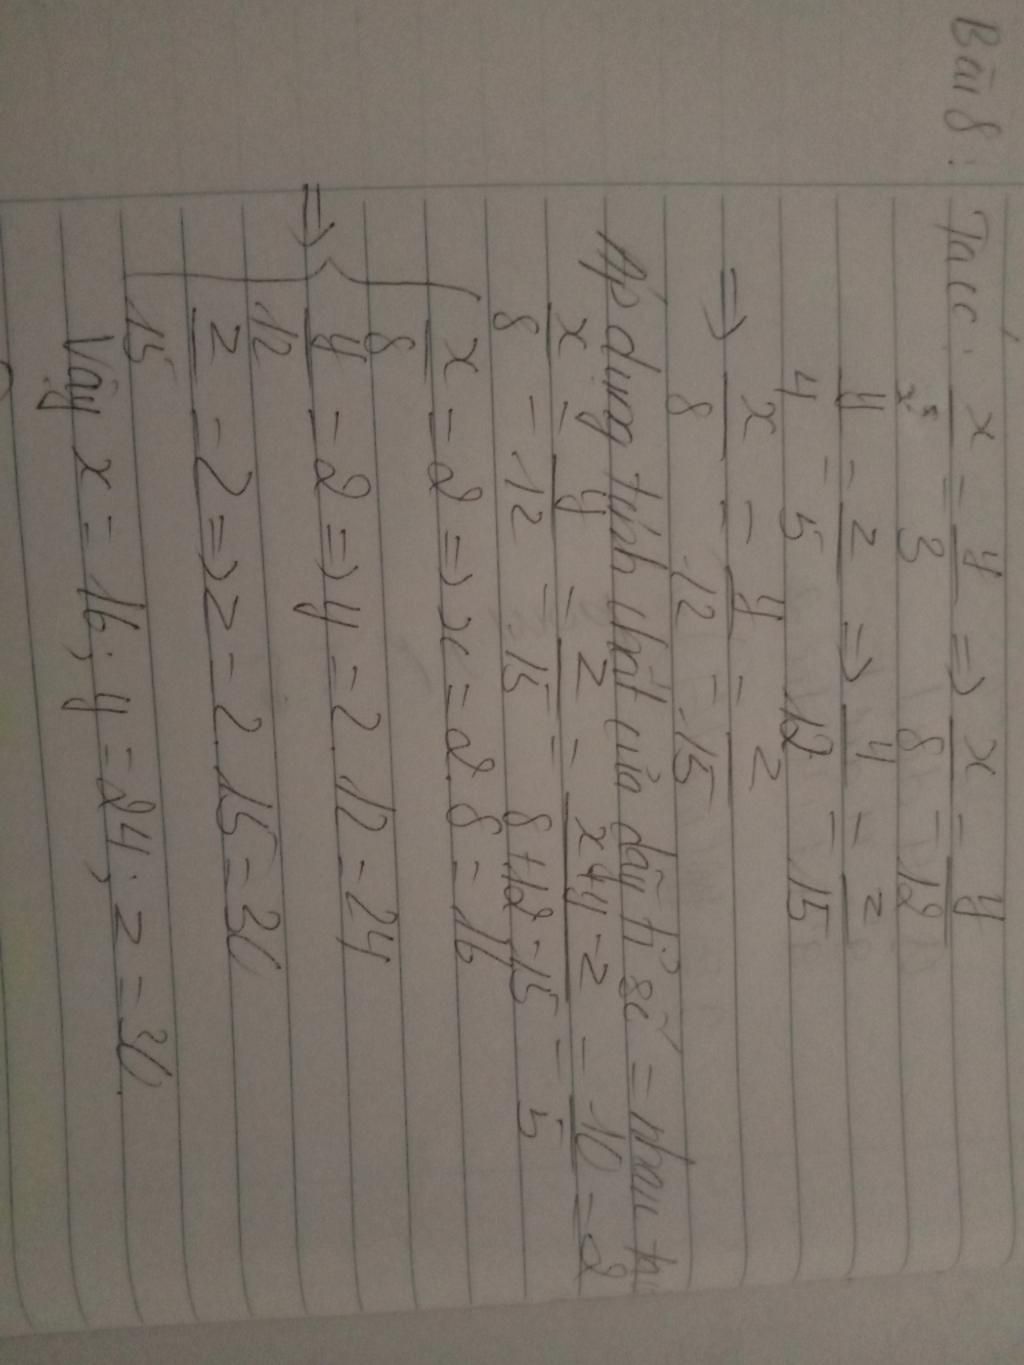 Bài 8:
Ta có: x/2 = y/3 => x/8 = y/12
y/4 = z/5 => y/12 = z/15
=> x/8 = y/12 = z/15
Áp dụng tính chất của dãy tỉ số = nhau
x/8 = y/12 = z/15 = x+y-z/8+12-15 = 10/5 = 2
=> { x/8 = 2 => x = 2.8 = 16
y/12 = 2 => y = 2.12 = 24
z/15 = 2 => z = 2.15 = 30
Vậy x = 16; y = 24; z = 30.